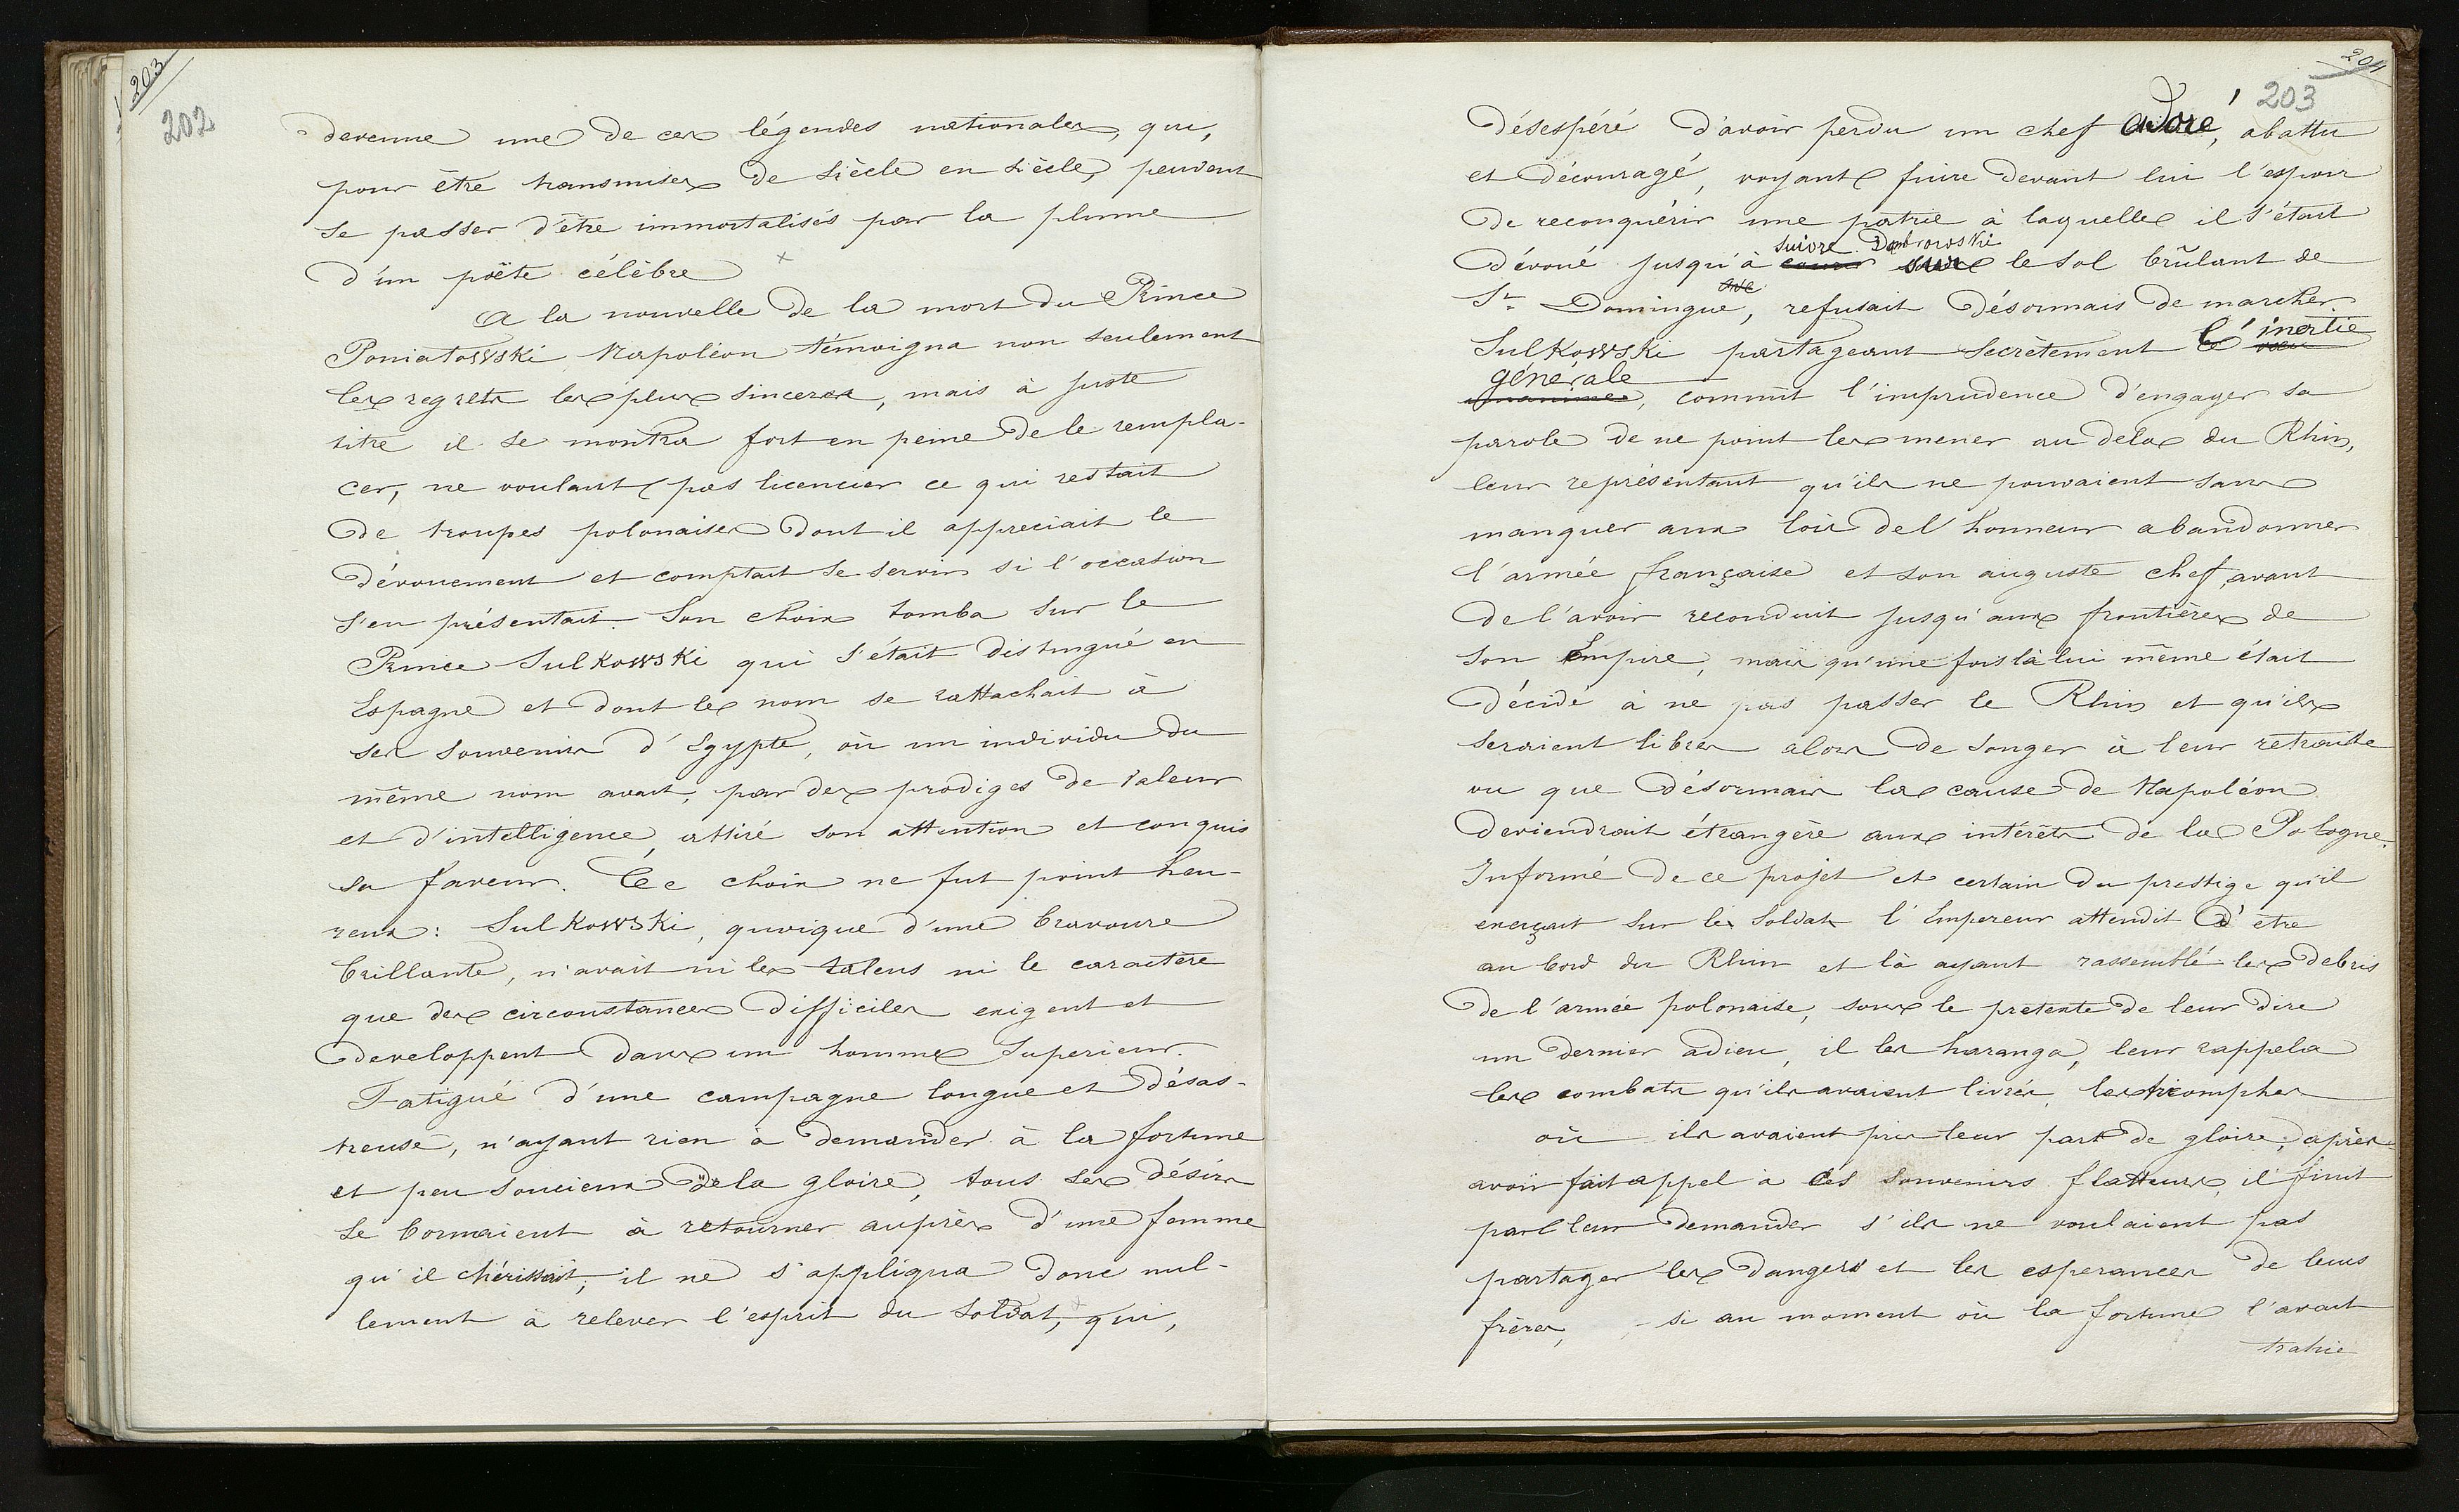 203
202
devenue une de ces légendes nationales, qui,
pour être transmises de siècle en siècle, peuvent
se passer d'être immortalisés par la plume
d'un poëte célèbre ×
A la nouvelle de la mort du Prince
Poniatowski Napoléon témoigna non seulement
les regrets les plus sinceres, mais à juste
titre il se montra fort en peine de le rempla-
cer, ne voulant pas licencier ce qui restait
de troupes polonaises dont il appreciait le
dévouement et comptait se servir si l'occasion
s'en présentait. Son choix tomba sur le
Prince Sulkowski qui s'était distingué en
Espagne et dont le nom se rattachait à
ses souvenirs d'Egypte, où un individu du
même nom avait, par des prodiges de valeur
et d'intelligence, attiré son attention et conquis
sa faveur. Ce choix ne fut point heu-
reux: Sulkowski, quoique d'une bravoure
brillante, n'avait ni les talens ni le caractère
que des circonstances difficiles exigent et
developpent dans un homme superieur.
Fatigué d'une campagne longue et désas-
treuse, n'ayant rien à demander à la fortune
et peu soucieux de la gloire, tous ses désirs
se bornaient à retourner auprès d'une femme
qu'il chérissait, il ne s'appliqua donc nul-
lement à relever l'esprit du soldat, qui,
204
203
désespéré d'avoir perdu un chef adoré, abattu
et découragé, voyant fuire devant lui l'espoir
de reconquérir une patrie à laquelle il s'était
suivre Dombrowski
dévoué jusqu'à sur le sol brûlant de
St Domingue, refusait désormais de marcher
Sulkowski partageant secrètement l'inertie
générale
, commit l'imprudence d'engager sa
parole de ne point les mener au dela du Rhin,
leur représentant qu'ils ne pouvaient sans
manquer aux lois de l'honneur abandonner
l'armée française et son auguste chef, avant
de l'avoir reconduit jusqu'aux frontières de
son Empire, mais qu'une fois là lui même était
décidé à ne pas passer le Rhin et qu'ils
seraient libres alors de songer à leur retraite
vu que désormais la cause de Napoléon
deviendrait étrangère aux intérêts de la Pologne.
Informé de ce projet et certain du prestige qu'il
exerçait sur les soldats l'Empereur attendit d'etre
au bord du Rhin et là ayant rassemblé les debris
de l'armée polonaise, sous le pretexte de leur dire
un dernier adieu, il les haranga, leur rappela
les combats qu'ils avaient livrés, les triomphes
où ils avaient pris leur part de gloire; après
avoir fait appel à ces souvenirs flatteurs, il finit
par leur demander s'ils ne voulaient pas
partager les dangers et les esperances de leurs
frères, - si au moment où la fortune l'avait
trahie